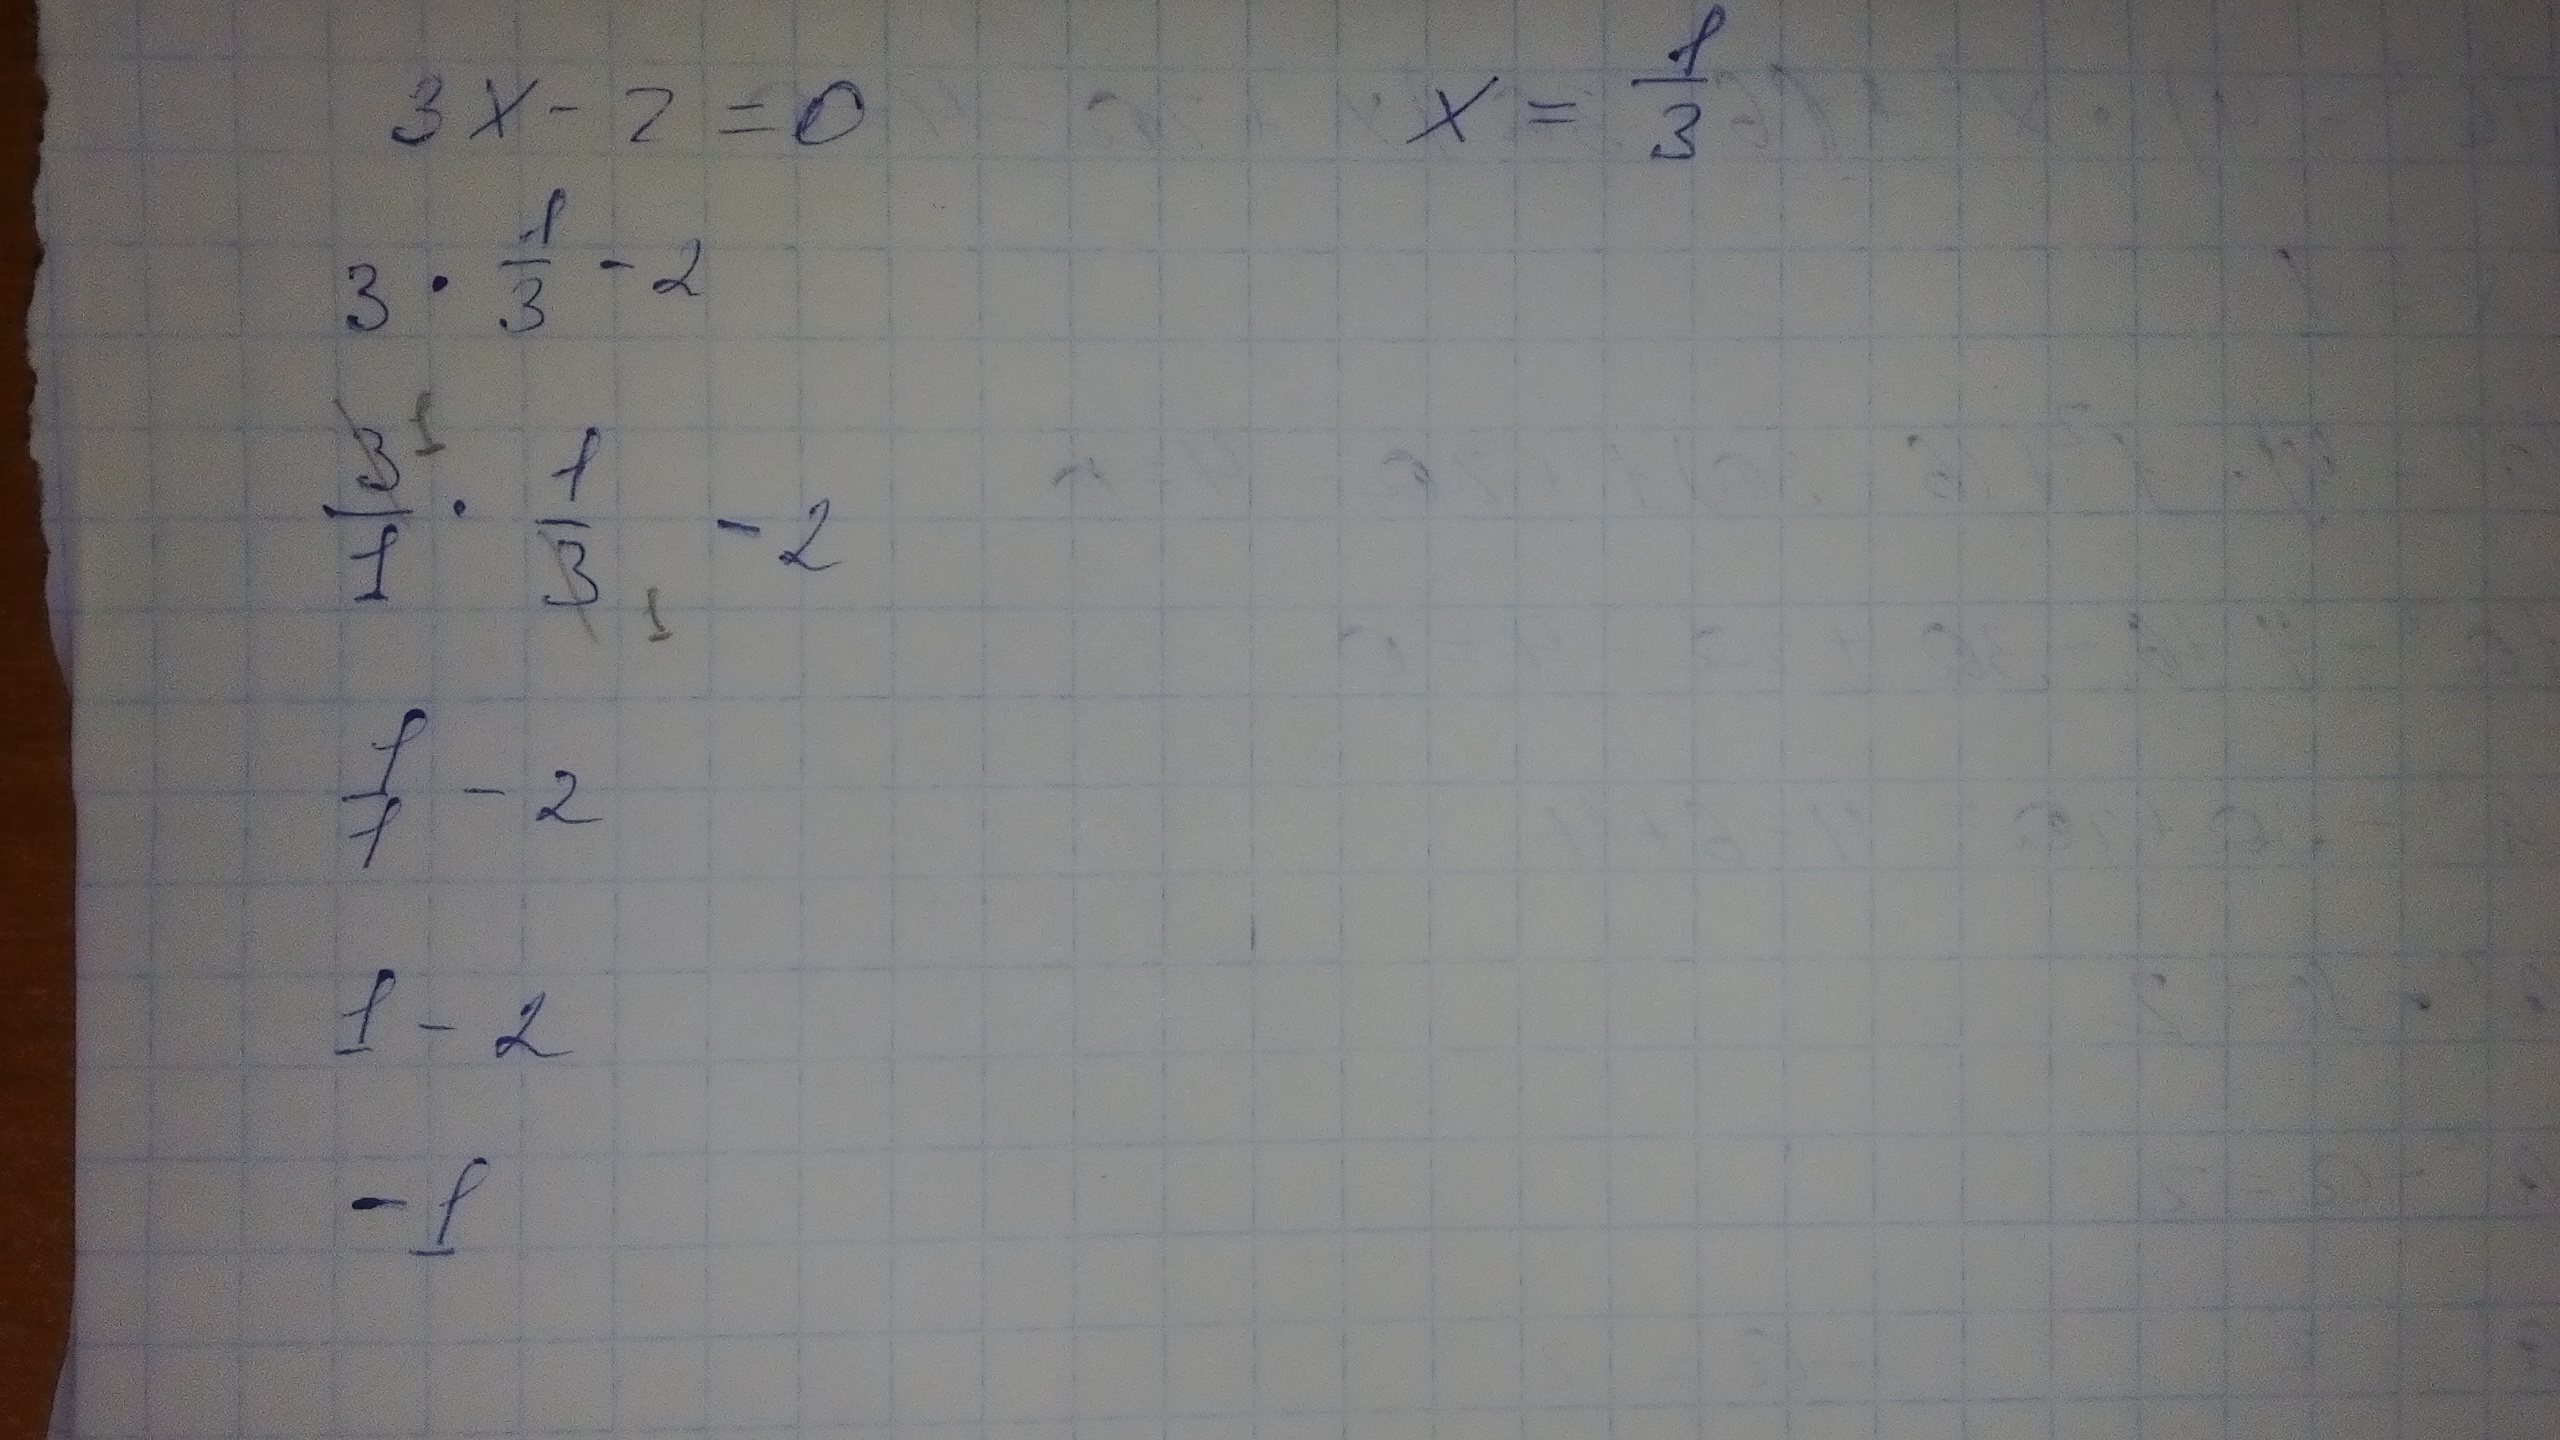 3x - 2 = 0    x = 1/3
3 · 1/3 - 2
3 1/1 · 1/3 1 - 2
1/1 - 2
1 - 2
-1